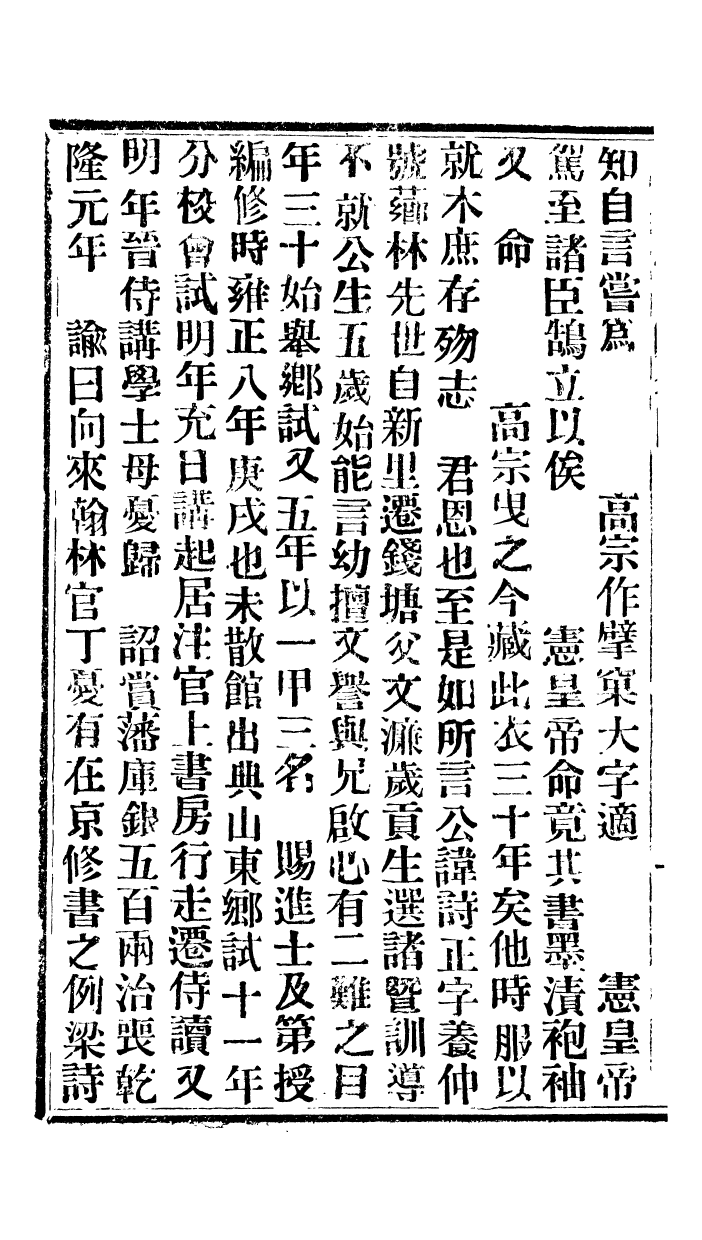 知自言嘗爲　高宗作擘窠大字適　憲皇帝
駕至諸臣鵠立以俟　憲皇帝命竟其書墨漬袍袖
又　命　高宗曳之今藏此衣三十年矣他時服以
就木庶存歾志　君恩也至是如所言公諱詩正字養仲
號薌林先世自新里遷錢塘父文濂歲貢生選諸暨訓導
不就公生五歲始能言幼擅文譽與兄啟心有二難之目
年三十始舉鄉試又五年以一甲三名　賜進士及第授
編修時雍正八年庚戌也未散館出典山東鄉試十一年
分校會試明年充日講起居注官上書房行走遷侍讀又
明年晉侍講學士母憂歸　詔賞藩庫銀五百兩治喪乾
隆元年　諭曰向來翰林官丁憂有在京修書之例梁詩